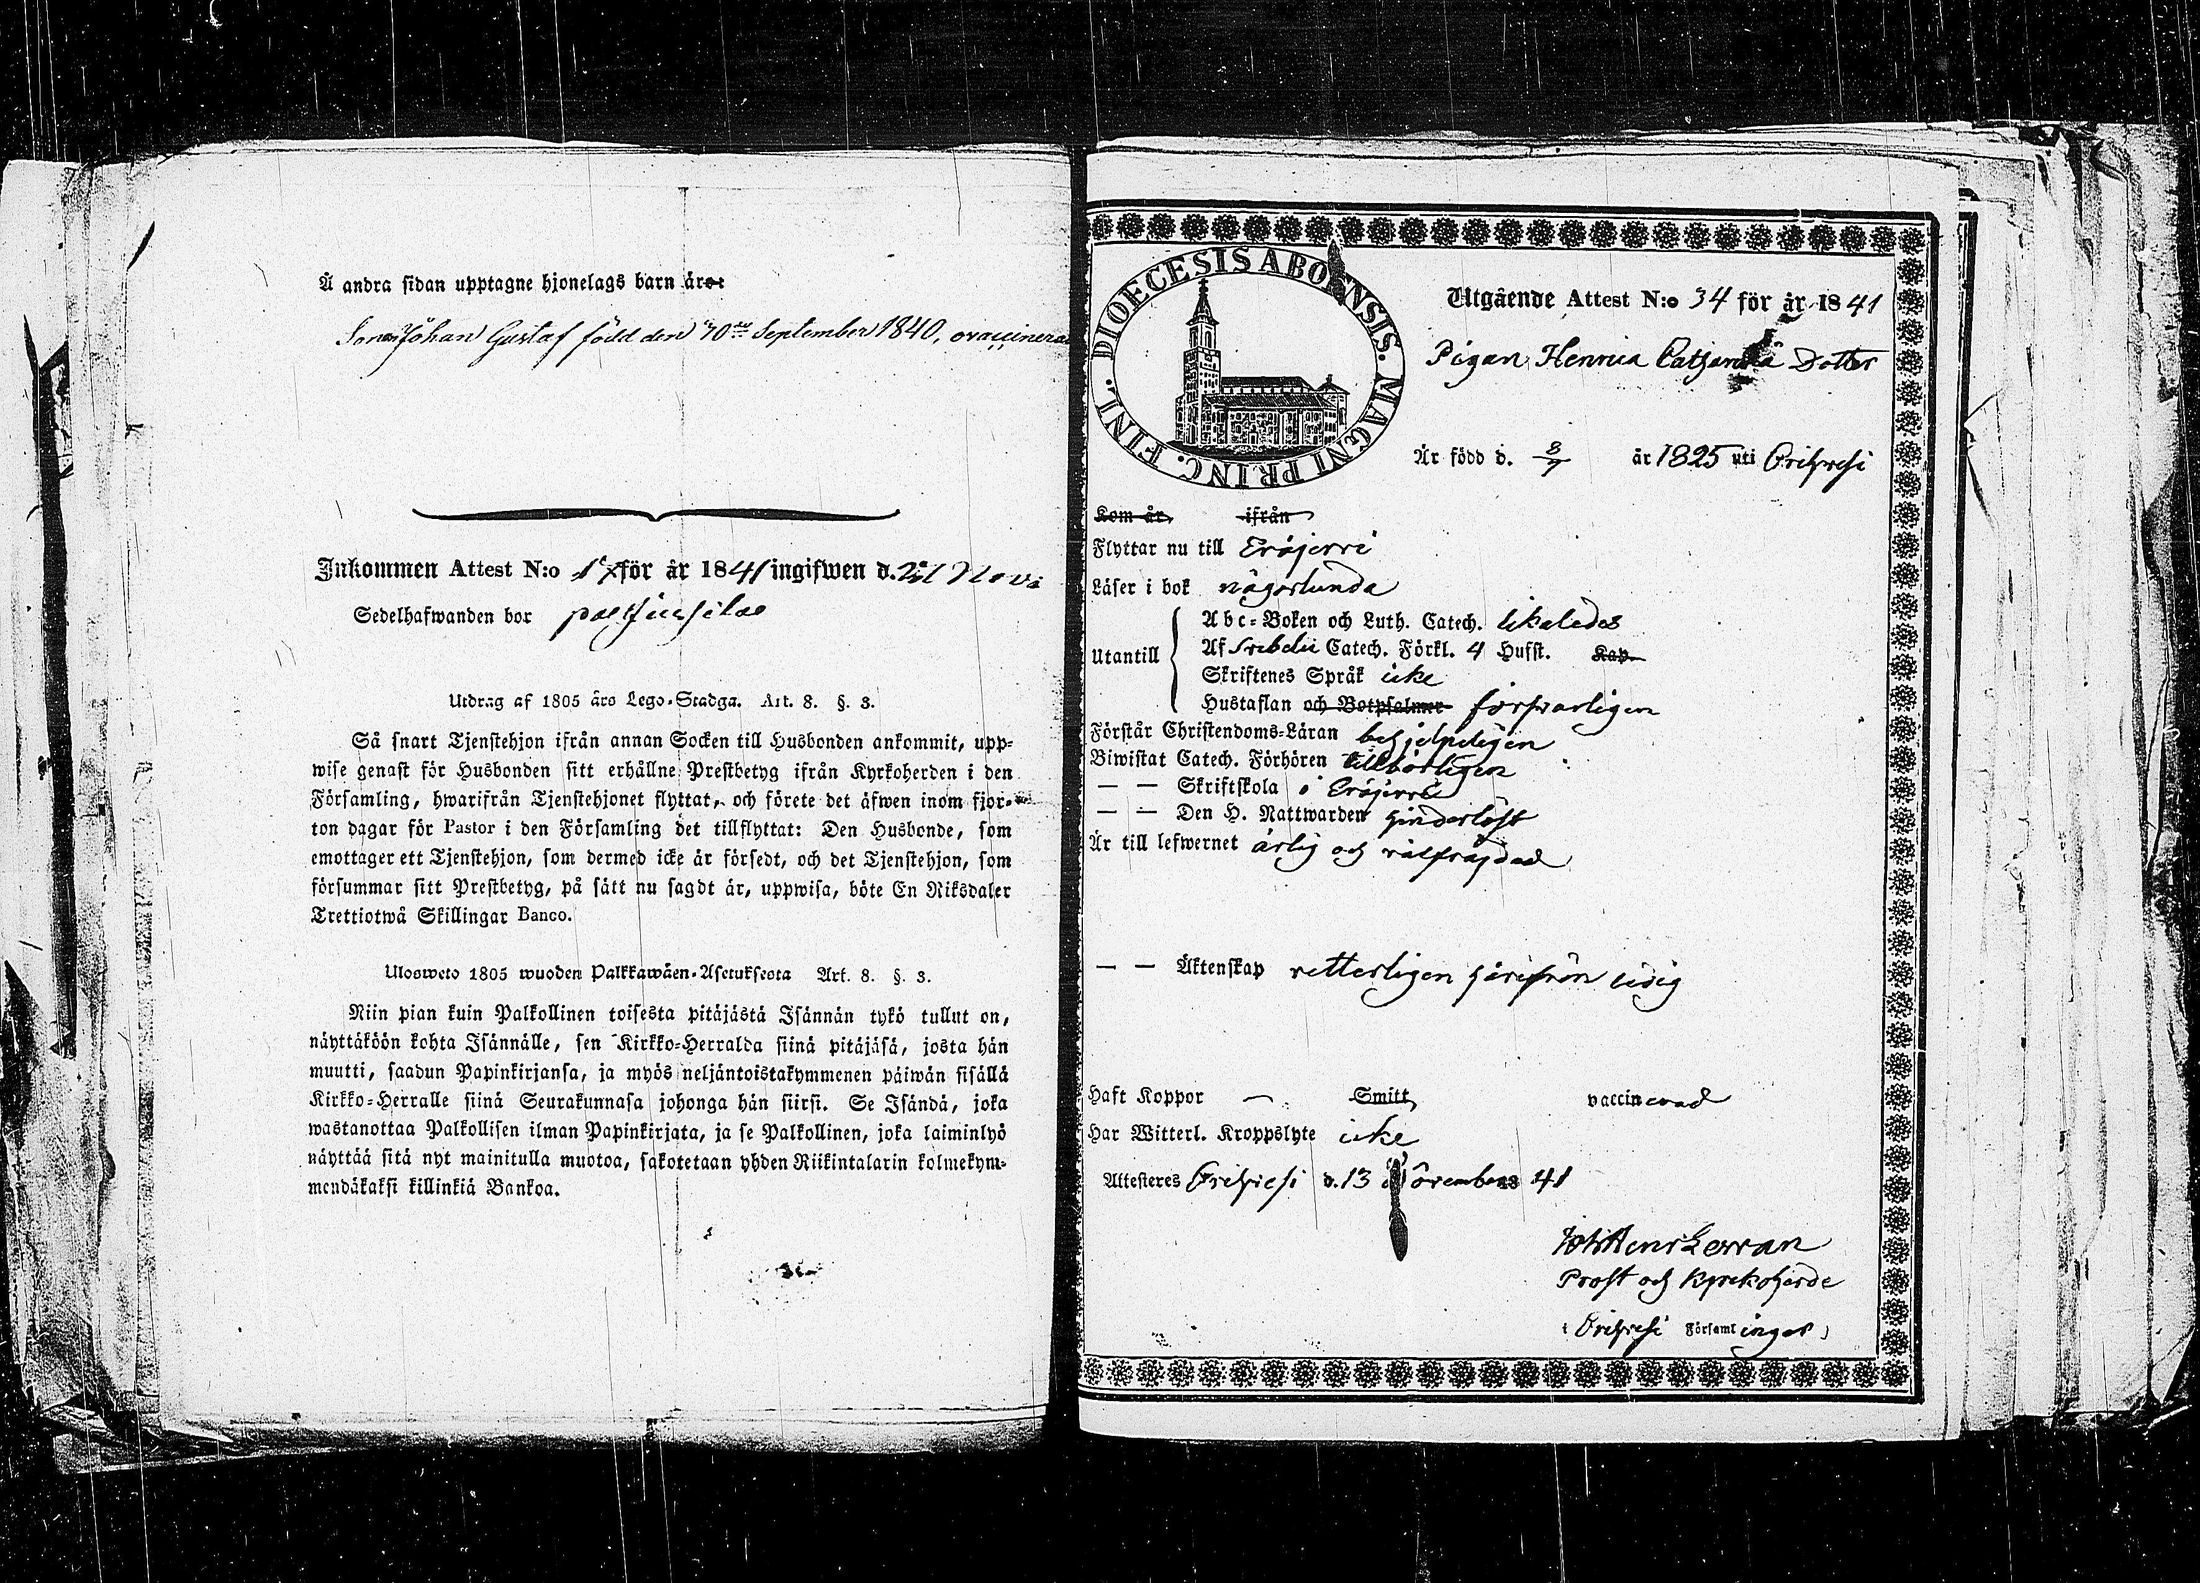 Å andra sidan upptagne hjonelags barn äro:
Sonen Johan Gustaf född den 10de September 1840, ovaccinerad
Inkommen Attest N:o för år 1841 ingifwen d. 21 Nov
Sedelhafwanden bor
Utdrag af 1805 års Lego-Stadga. Art. 8. §. 3.
Så snart Tjenstehjon ifrån annan Socken till Husbonden ankommit, upp-
wise genast för Husbonden sitt erhållne Prestbetyg ifrån Kyrkoherden i den
Församling, hwarifrån Tjenstehjonet flyttat, och förete det äfwen inom fjor-
ton dagar för Pastor i den Församling det tillflyttat: Den Husbonde, som
emottager ett Tjenstehjon, som dermed icke är försedt, och det Tjenstehjon, som
försummar sitt Prestbetyg, på sätt nu sagdt är, uppwisa, böte En Riksdaler
Trettiotwå Skillingar Banco.
Ulosweto 1805 wuoden Palkkawäen-Asetuksesta Art. 8. §. 3.
Niin pian kuin Palkollinen toisesta pitäjästä Isännän tykö tullut on,
näyttäköön kohta Isännälle, sen Kirkko-Herralda siinä pitäjäsä, josta hän
muutti, saadun Papinkirjansa, ja myös neljäntoistakymmenen päiwän sisällä
Kirkko-Herralle siinä Seurakunnasa johonga hän siirsi. Se Isändä, joka
wastanottaa Palkollisen ilman Papinkirjata, ja se Palkollinen, joka laiminlyö
näyttää sitä nyt mainitulla muotoa, sakotetaan yhden Riikintalarin kolmekym-
mendäkaksi killinkiä Bankoa.
DIOECESIS ABOENSIS. MAGNI PRINC. FINL.
Utgående Attest N:o 34 för år 1841
Pigan Henrica Dotter
Är född d. 8/7 år 1825 uti Oripesi
Kom år, ifrån
Flyttar nu till Eräjerri
Läser i bok någorlunda
Utantill
Abc-Boken och Luth. Catech. likaledes
Af Svebelii Catech. Förkl. 4 Hufst. Kap.
Skriftenes Språk icke
Hustaflan och Botpsalmer försvarligen
Förstår Christendoms-Läran behjelpeligen
Biwistat Catech. Förhören tillbörligen
— — Skriftskola i Eräjerri
— — Den H. Nattwarden hinderlöst
Är till lefwernet ärlig och välfräjdad
— — Äktenskap vetterligen härifrån ledig
Haft Koppor — Smitt, vaccinerad
Har Witterl. Kroppslyte icke
Attesteres Oripesi d. 13 November 41
Prost och Kyrkoherde
i Oripesi Församlingar